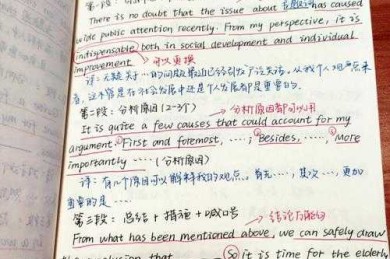 There is no doubt that the issue about 主题词 has caused
wide public attention recently. From my perspective, it is
indispensable both in social development and individual
improvement → 可以更换
译：无疑关于一的问题最近已经引发广泛关注。从我个人观点来
看，这不管是在社会发展中还是个人发展都是重要的。
第二段：分析原因（2-3个） → 分析原因都可以用
It is quite a few causes that could account for my
argument. ①First and foremost, ....; ②Besides, ....; ③More
importantly .... (分析原因)
译：有几个原因可以解释我的观点。首先...，其次...，更加
重要的是....
第三段：总结+措施+喊口号 → 结论万能句
From what has been mentioned above, we can safely draw
conclusion that So it is time for the elderly